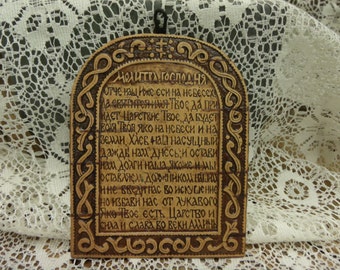 Молитва Господня
Отче наш иже еси на небесех
да святится имя Твое да при
идет Царствие Твое да будет
воля Твоя яко на небеси и на
земли хлеб наш насущный
даждь нам днесь и остави
нам долги наша якоже и мы
оставляем должником нашим
и не введи нас во искушение
но избави нас от лукаваго
яко Твое есть Царство и
сила и слава во веки Аминь